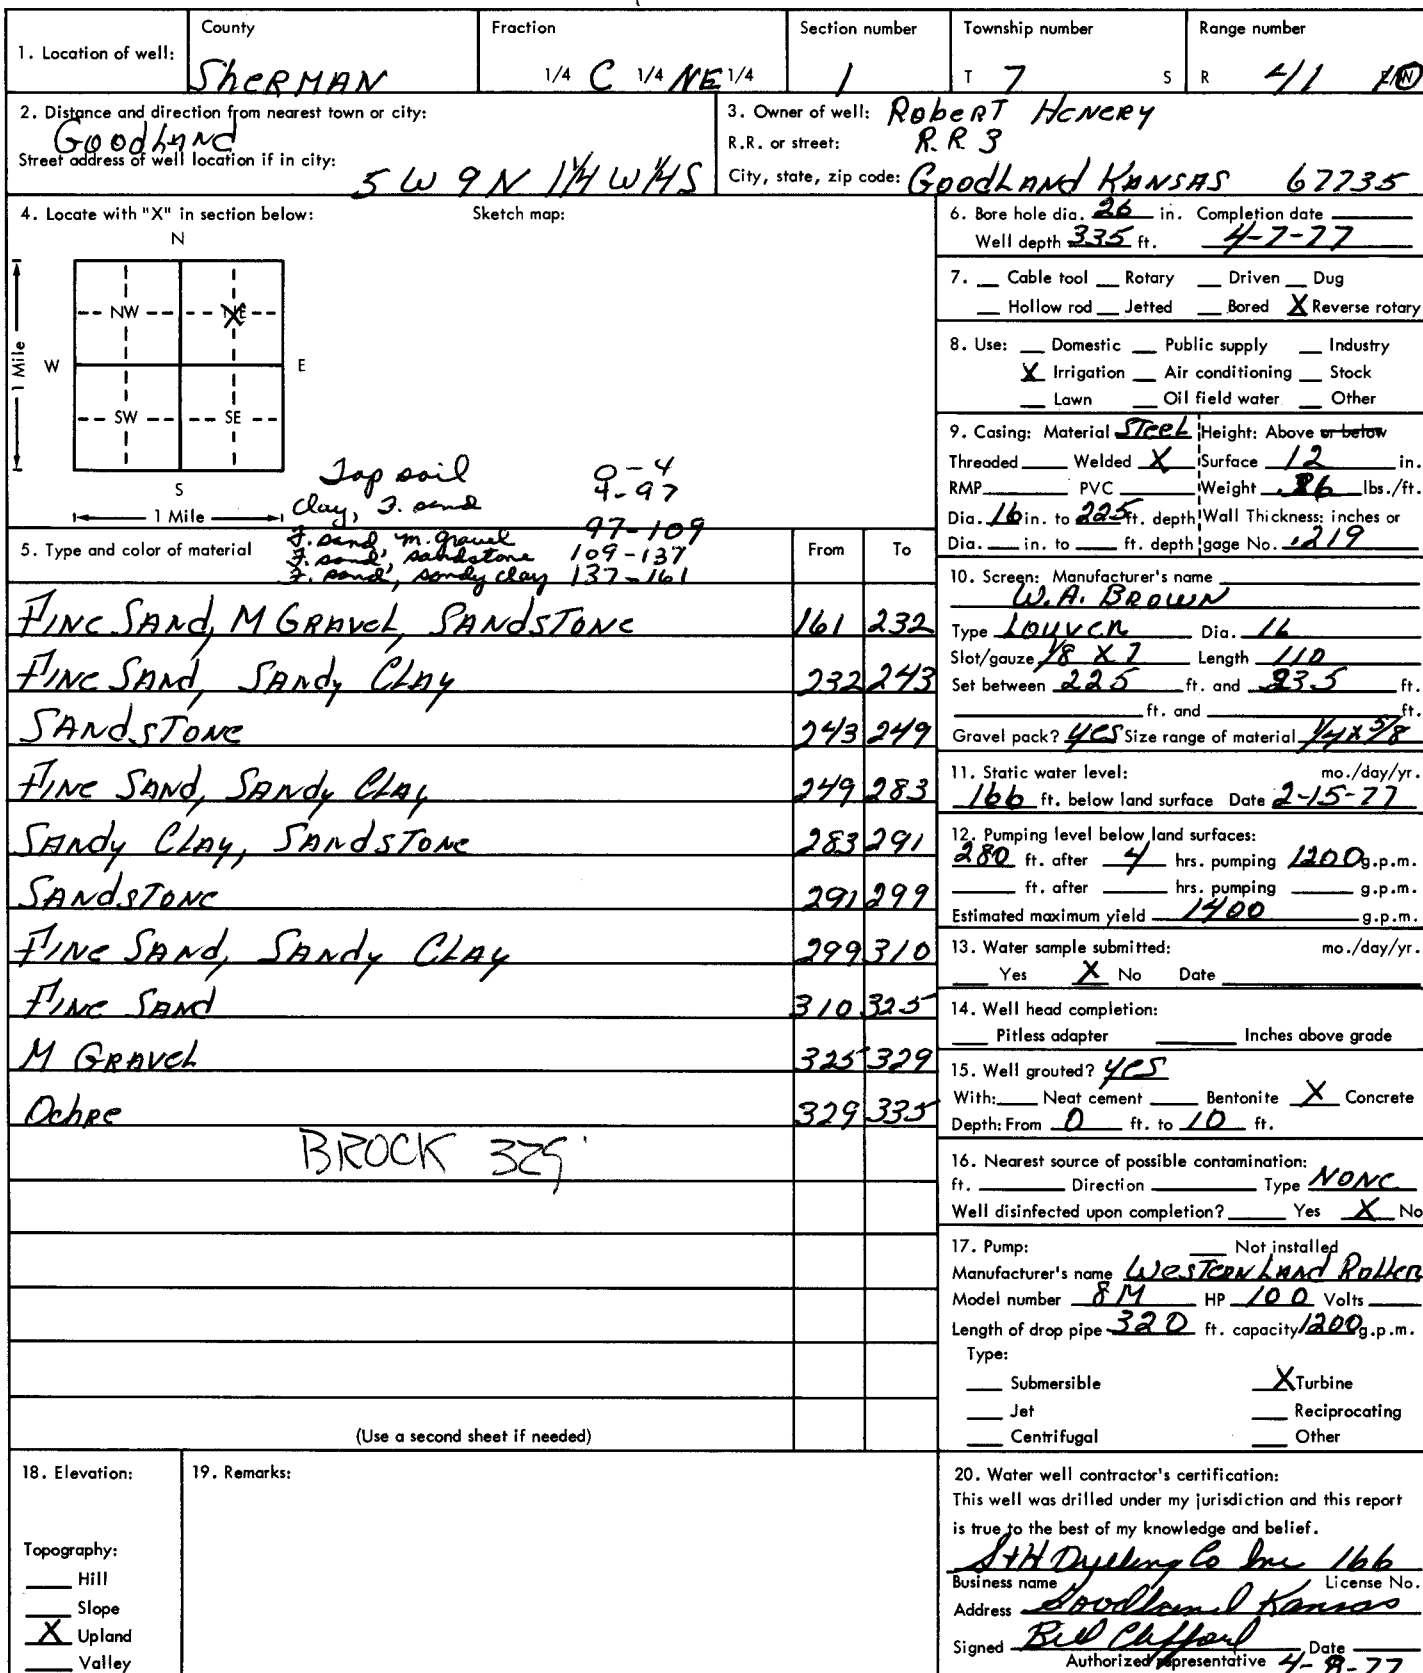 County Fraction Section number Township number Range number
1. Location of well: SheRMAN 1/4 C 1/4 NE 1/4 1 T 7 S R 41 E/W
2. Distance and direction from nearest town or city: Goodland
Street address of well location if in city: 5 W 9 N 1 1/4 W 1/4 S
3. Owner of well: RobeRT HeNeRy
R.R. or street: R.R 3
City, state, zip code: GoodLAnd KANSAS 67735
4. Locate with "X" in section below: Sketch map:
N
NW NE
W E
1 Mile
SW SE
S
1 Mile
Top soil 0-4
Clay, F. sand 4-97
F. sand m. gravel 97-109
F. sand, sandstone 109-137
F. sand, sandy clay 137-161
5. Type and color of material From To
Fine SANd, M GRAVeL, SANdsTone 161 232
Fine SANd, SANdy CLAy 232 243
SANdsTone 243 249
Fine SANd, SANdy CLAy 249 283
SANdy CLAy, SANdsTone 283 291
SANdsTone 291 299
Fine SANd, SANdy CLAy 299 310
Fine SANd 310 325
M GRAVeL 325 329
OchRe 329 335
BROCK 329'
(Use a second sheet if needed)
6. Bore hole dia. 26 in. Completion date
Well depth 335 ft. 4-7-77
7. Cable tool Rotary Driven Dug
Hollow rod Jetted Bored X Reverse rotary
8. Use: Domestic Public supply Industry
X Irrigation Air conditioning Stock
Lawn Oil field water Other
9. Casing: Material STeeL Height: Above or below
Threaded Welded X Surface 12 in.
RMP PVC Weight lbs./ft.
Dia. 16 in. to 225 ft. depth Wall Thickness: inches or
Dia. in. to ft. depth gage No. .219
10. Screen: Manufacturer's name
W.A. BROWN
Type Louver Dia. 16
Slot/gauze 1/8 X 7 Length 110
Set between 225 ft. and 335 ft.
ft. and ft.
Gravel pack? yes Size range of material 1/4 x 5/8
11. Static water level: mo./day/yr.
166 ft. below land surface Date 2-15-77
12. Pumping level below land surfaces:
280 ft. after 4 hrs. pumping 1200 g.p.m.
ft. after hrs. pumping g.p.m.
Estimated maximum yield 1400 g.p.m.
13. Water sample submitted: mo./day/yr.
Yes X No Date
14. Well head completion:
Pitless adapter Inches above grade
15. Well grouted? yes
With: Neat cement Bentonite X Concrete
Depth: From 0 ft. to 10 ft.
16. Nearest source of possible contamination:
ft. Direction Type None
Well disinfected upon completion? Yes X No
17. Pump: Not installed
Manufacturer's name WesTeRN LANd RoLLeR
Model number 8M HP 100 Volts
Length of drop pipe 320 ft. capacity 1200 g.p.m.
Type:
Submersible X Turbine
Jet Reciprocating
Centrifugal Other
18. Elevation:
Topography:
Hill
Slope
X Upland
Valley
19. Remarks:
20. Water well contractor's certification:
This well was drilled under my jurisdiction and this report
is true to the best of my knowledge and belief.
S+H Drilling Co Inc 166
Business name License No.
Address Goodland Kansas
Signed Bill Clifford Date
Authorized representative 4-8-77